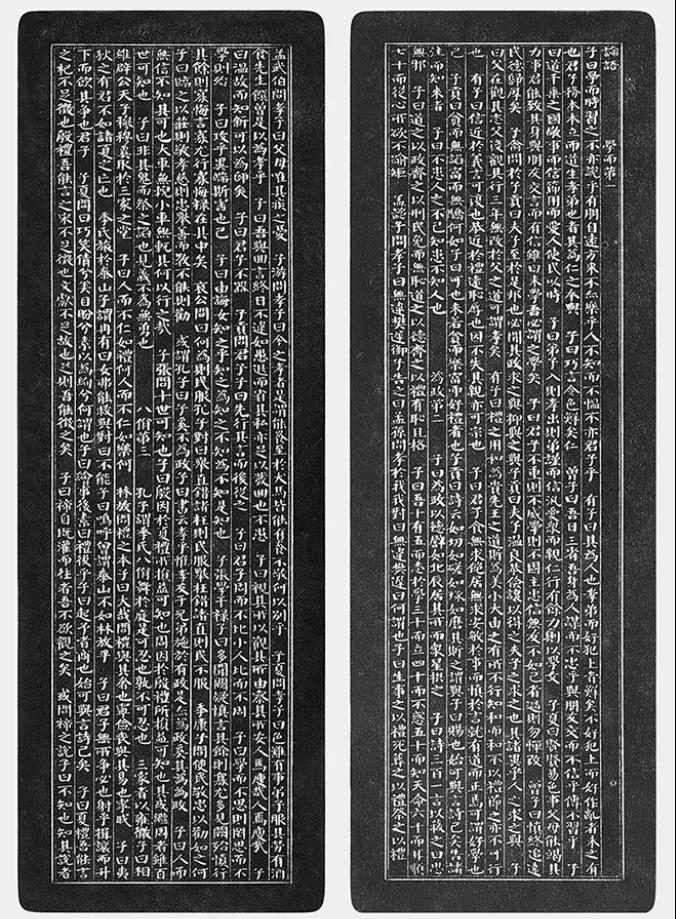 論語 學而第一
子曰學而時習之不亦說乎有朋自遠方來不亦樂乎人不知而不慍不亦君子乎 有子曰其為人也孝弟而好犯上者鮮矣不好犯上而好作亂者未之有
也君子務本本立而道生孝弟也者其為仁之本與 子曰巧言令色鮮矣仁 曾子曰吾日三省吾身為人謀而不忠乎與朋友交而不信乎傳不習乎 子
曰道千乘之國敬事而信節用而愛人使民以時 子曰弟子入則孝出則弟謹而信汎愛衆而親仁行有餘力則以學文 子夏曰賢賢易色事父母能竭其
力事君能致其身與朋友交言而有信雖曰未學吾必謂之學矣 子曰君子不重則不威學則不固主忠信無友不如己者過則勿憚改 曾子曰慎終追遠
民德歸厚矣 子禽問於子貢曰夫子至於是邦也必聞其政求之與抑與之與子貢曰夫子溫良恭儉讓以得之夫子之求之也其諸異乎人之求之與 子
曰父在觀其志父沒觀其行三年無改於父之道可謂孝矣 有子曰禮之用和為貴先王之道斯為美小大由之有所不行知和而和不以禮節之亦不可行
也 有子曰信近於義言可復也恭近於禮遠恥辱也因不失其親亦可宗也 子曰君子食無求飽居無求安敏於事而慎於言就有道而正焉可謂好學也
已 子貢曰貧而無諂富而無驕何如子曰可也未若貧而樂富而好禮者也子貢曰詩云如切如磋如琢如磨其斯之謂與子曰賜也始可與言詩已矣告諸
往而知來者 子曰不患人之不己知患不知人也 為政第二 子曰為政以德譬如北辰居其所而衆星拱之 子曰詩三百一言以蔽之曰思
無邪 子曰道之以政齊之以刑民免而無恥道之以德齊之以禮有恥且格 子曰吾十有五而志於學三十而立四十而不惑五十而知天命六十而耳順
七十而從心所欲不踰矩 孟懿子問孝子曰無違樊遲御子告之曰孟孫問孝於我我對曰無違樊遲曰何謂也子曰生事之以禮死葬之以禮祭之以禮
孟武伯問孝子曰父母唯其疾之憂 子游問孝子曰今之孝者是謂能養至於犬馬皆能有養不敬何以別乎 子夏問孝子曰色難有事弟子服其勞有酒
食先生饌曾是以為孝乎 子曰吾與回言終日不違如愚退而省其私亦足以發回也不愚 子曰視其所以觀其所由察其所安人焉廋哉人焉廋哉 子
曰溫故而知新可以為師矣 子曰君子不器 子貢問君子子曰先行其言而後從之 子曰君子周而不比小人比而不周 子曰學而不思則罔思而不
學則殆 子曰攻乎異端斯害也已 子曰由誨女知之乎知之為知之不知為不知是知也 子張學干祿子曰多聞闕疑慎言其餘則寡尤多見闕殆慎行
其餘則寡悔言寡尤行寡悔祿在其中矣 哀公問曰何為則民服孔子對曰舉直錯諸枉則民服舉枉錯諸直則民不服 季康子問使民敬忠以勸如之何
子曰臨之以莊則敬孝慈則忠舉善而教不能則勸 或謂孔子曰子奚不為政子曰書云孝乎惟孝友于兄弟施於有政是亦為政奚其為為政 子曰人而
無信不知其可也大車無輗小車無軏其何以行之哉 子張問十世可知也子曰殷因於夏禮所損益可知也周因於殷禮所損益可知也其或繼周者雖百
世可知也 子曰非其鬼而祭之諂也見義不為無勇也 八佾第三 孔子謂季氏八佾舞於庭是可忍也孰不可忍也 三家者以雍徹子曰相
維辟公天子穆穆奚取於三家之堂 子曰人而不仁如禮何人而不仁如樂何 林放問禮之本子曰大哉問禮與其奢也寧儉喪與其易也寧戚 子曰夷
狄之有君不如諸夏之亡也 季氏旅於泰山子謂冉有曰女弗能救與對曰不能子曰嗚呼曾謂泰山不如林放乎 子曰君子無所爭必也射乎揖讓而升
下而飲其爭也君子 子夏問曰巧笑倩兮美目盼兮素以為絢兮何謂也子曰繪事後素曰禮後乎子曰起予者商也始可與言詩已矣 子曰夏禮吾能言
之杞不足徵也殷禮吾能言之宋不足徵也文獻不足故也足則吾能徵之矣 子曰禘自既灌而往者吾不欲觀之矣 或問禘之說子曰不知也知其說者